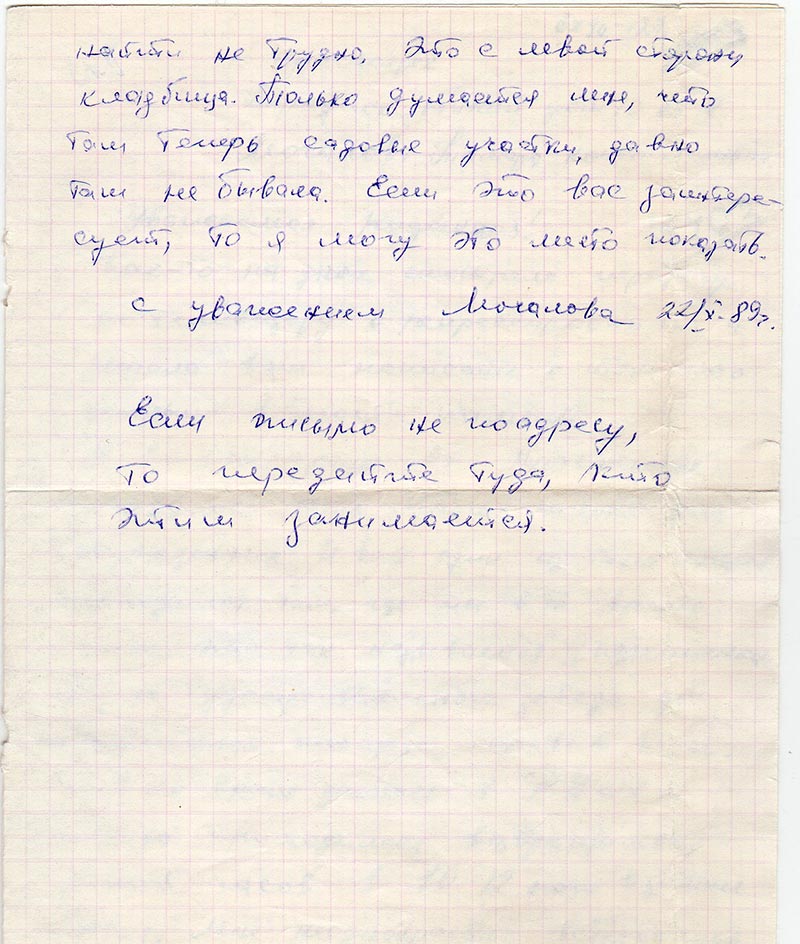 найти не трудно, это с левой стороны
кладбища. Только думается мне, что
там теперь садовые участки, давно
там не бывала. Если это вас заинтере-
сует, то я могу это место показать.
С уважением Мочалова 22/X-89г.
Если письмо не по адресу,
то передайте туда, кто
этим занимается.